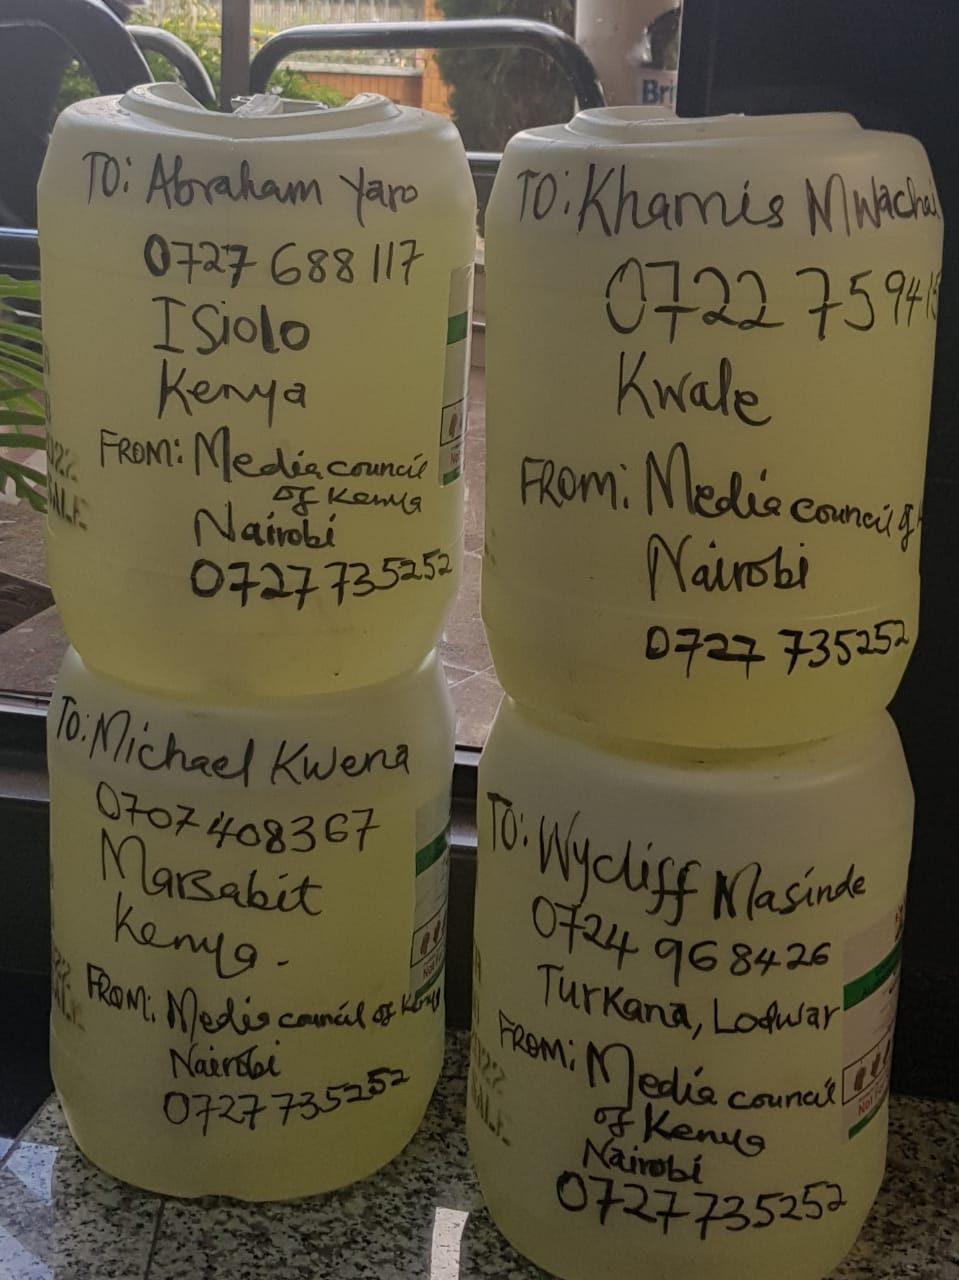 TO: Abraham Yaro
0727 688 117
ISiolo
Kenya
FROM: Media council
of Kenya
Nairobi
0727 735252
TO: Khamis
0722 7594
Kwale
FROM: Media council of
Nairobi
0727 735252
TO: Michael Kwena
0707 408367
Marsabit
Kenya.
FROM: Media council of Kenya
Nairobi
0727 735252
TO: Wycliff Masinde
0724 968426
Turkana, Lodwar
FROM: Media council
of Kenya
Nairobi
0727735252
Bri